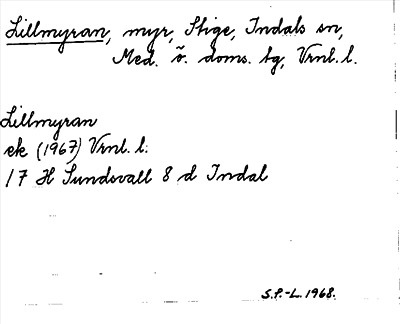 Lillmyran, myr, Stige, Indals sn,
Med. ö. doms. tg, Vrnl. l.
Lillmyran
ek (1967) Vrnl. l.
17 H Sundsvall 8 d Indal
S.F.-L. 1968.